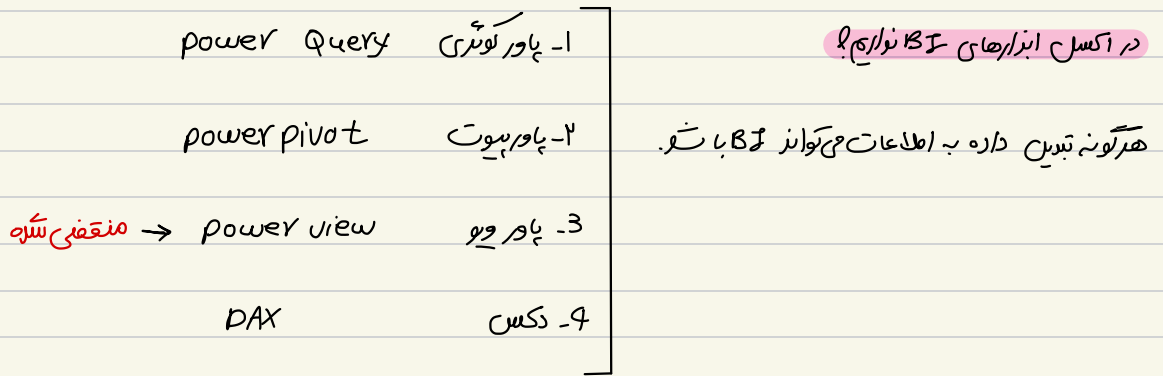 در اکسل ابزارهای BI نداریم؟
هرگونه تبدیل داده به اطلاعات می‌تواند BI باشد.
1- پاور کوئری power Query
2- پاور پیوت power pivot
3- پاور ویو power view → منقضی شده
4- دکس DAX